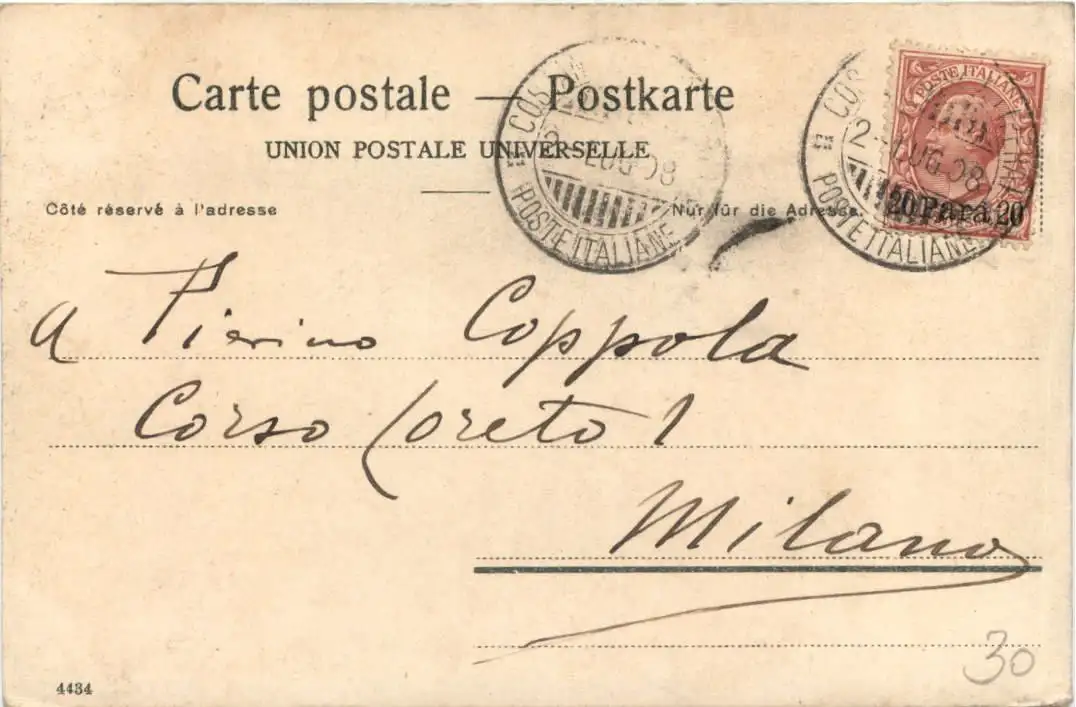 Carte postale — Postkarte
UNION POSTALE UNIVERSELLE
Côté réservé à l'adresse
Nur für die Adresse.
POSTE ITALIANE
LUG. 08
POSTE ITALIANE
POSTE ITALIANE
LUG. 08
POSTE ITALIANE
20 Para 20
A Pierino Coppola
Corso Loreto 1
Milano
30
4434